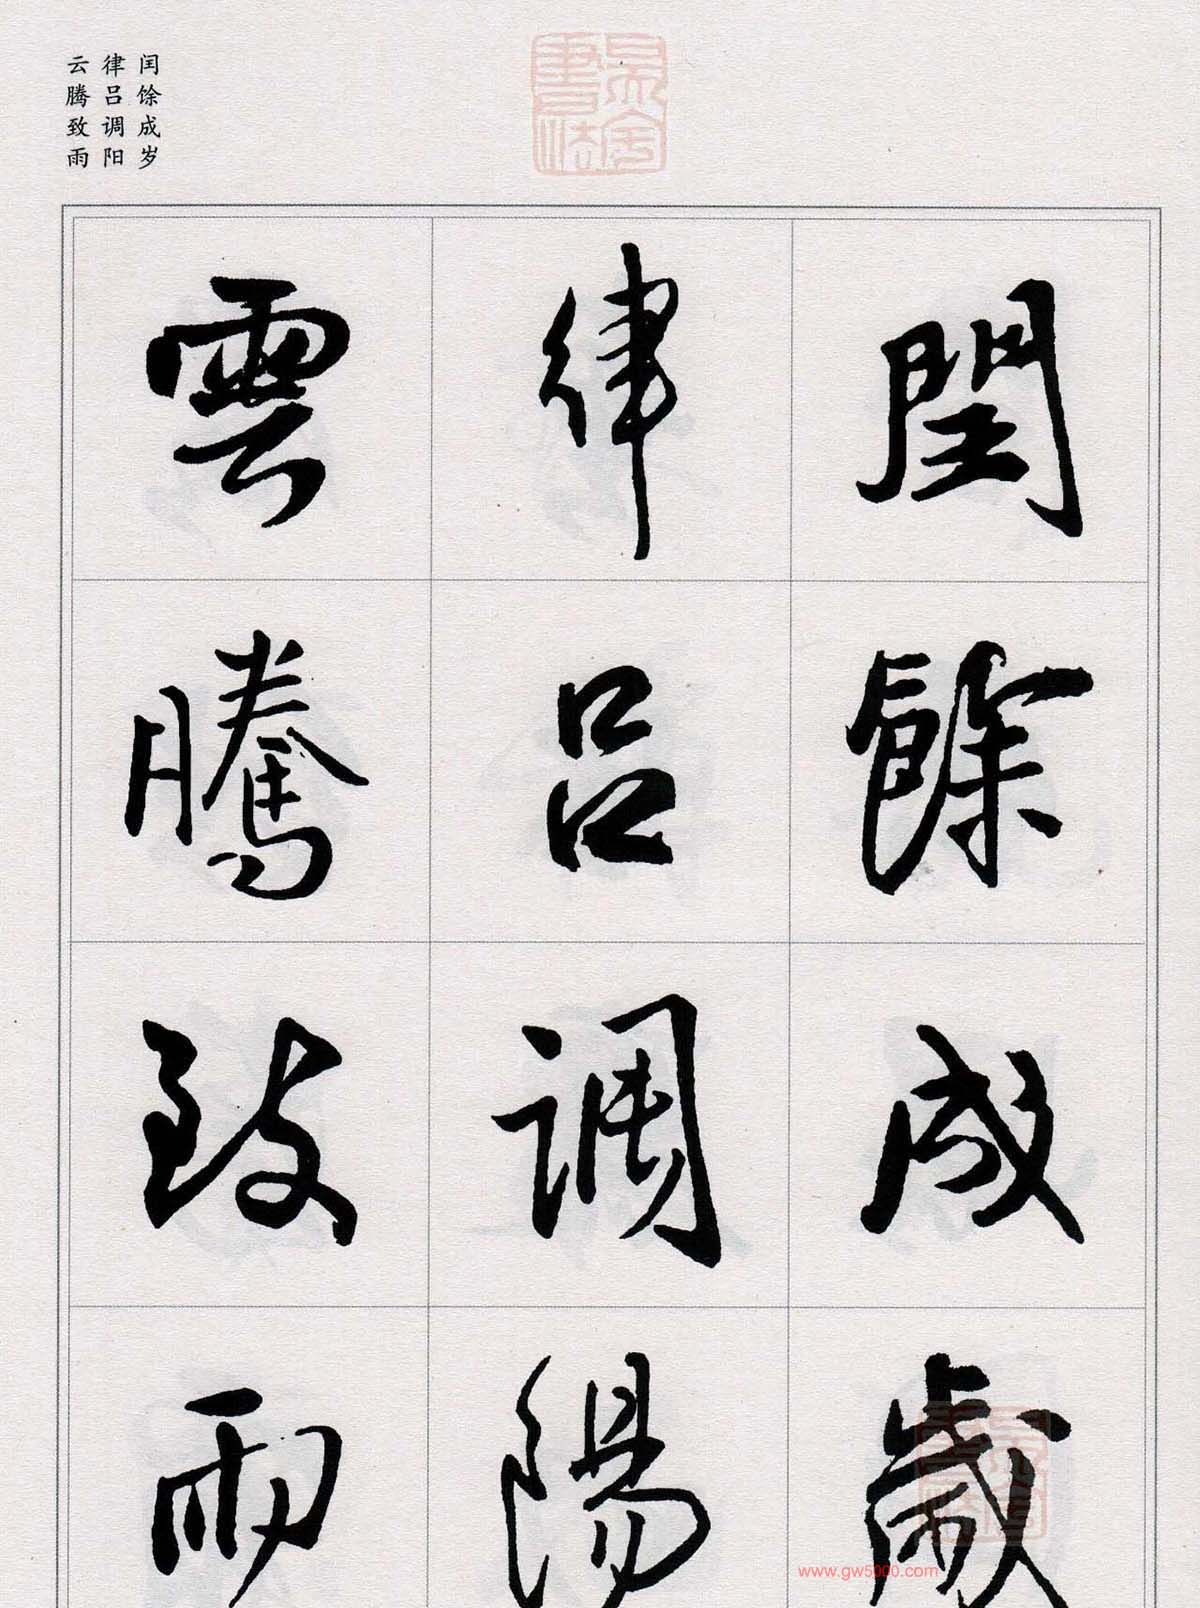 闰馀成岁
律吕调阳
云腾致雨
閏餘成歲
律呂調陽
雲騰致雨
www.gw5000.com